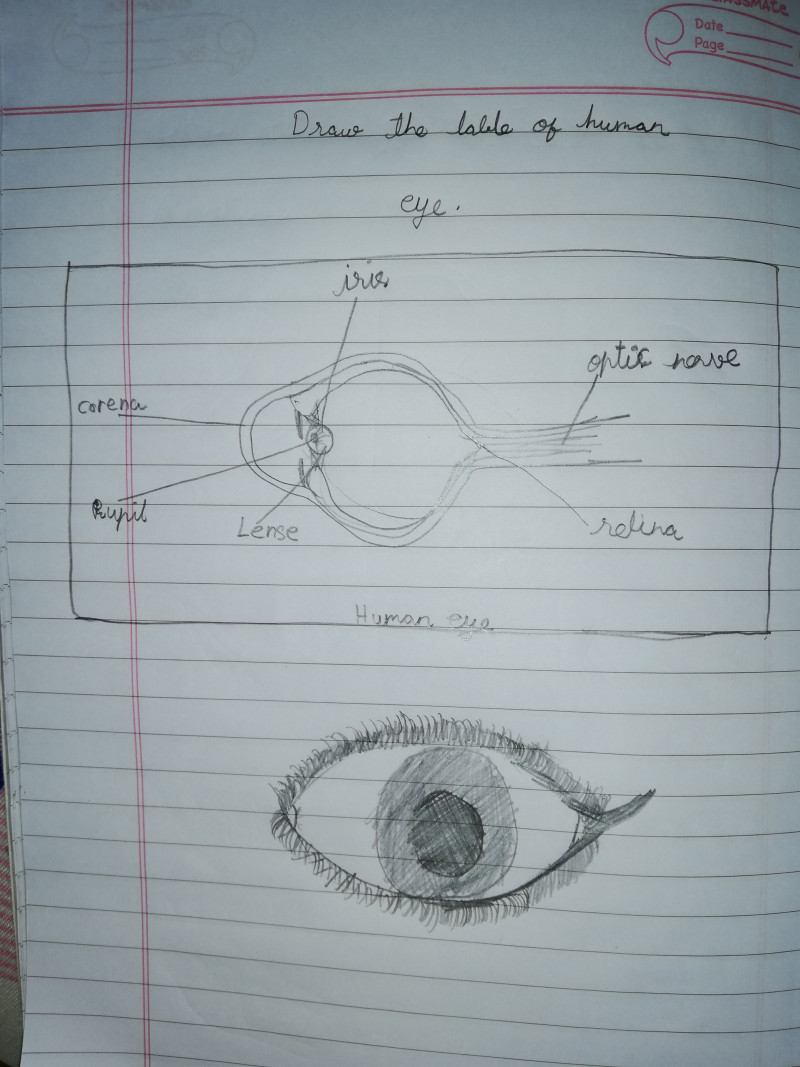 CLASSMATE
Date
Page
Draw the lable of human
eye.
iris
optic nerve
corena
Pupil
Lense
retina
Human eye